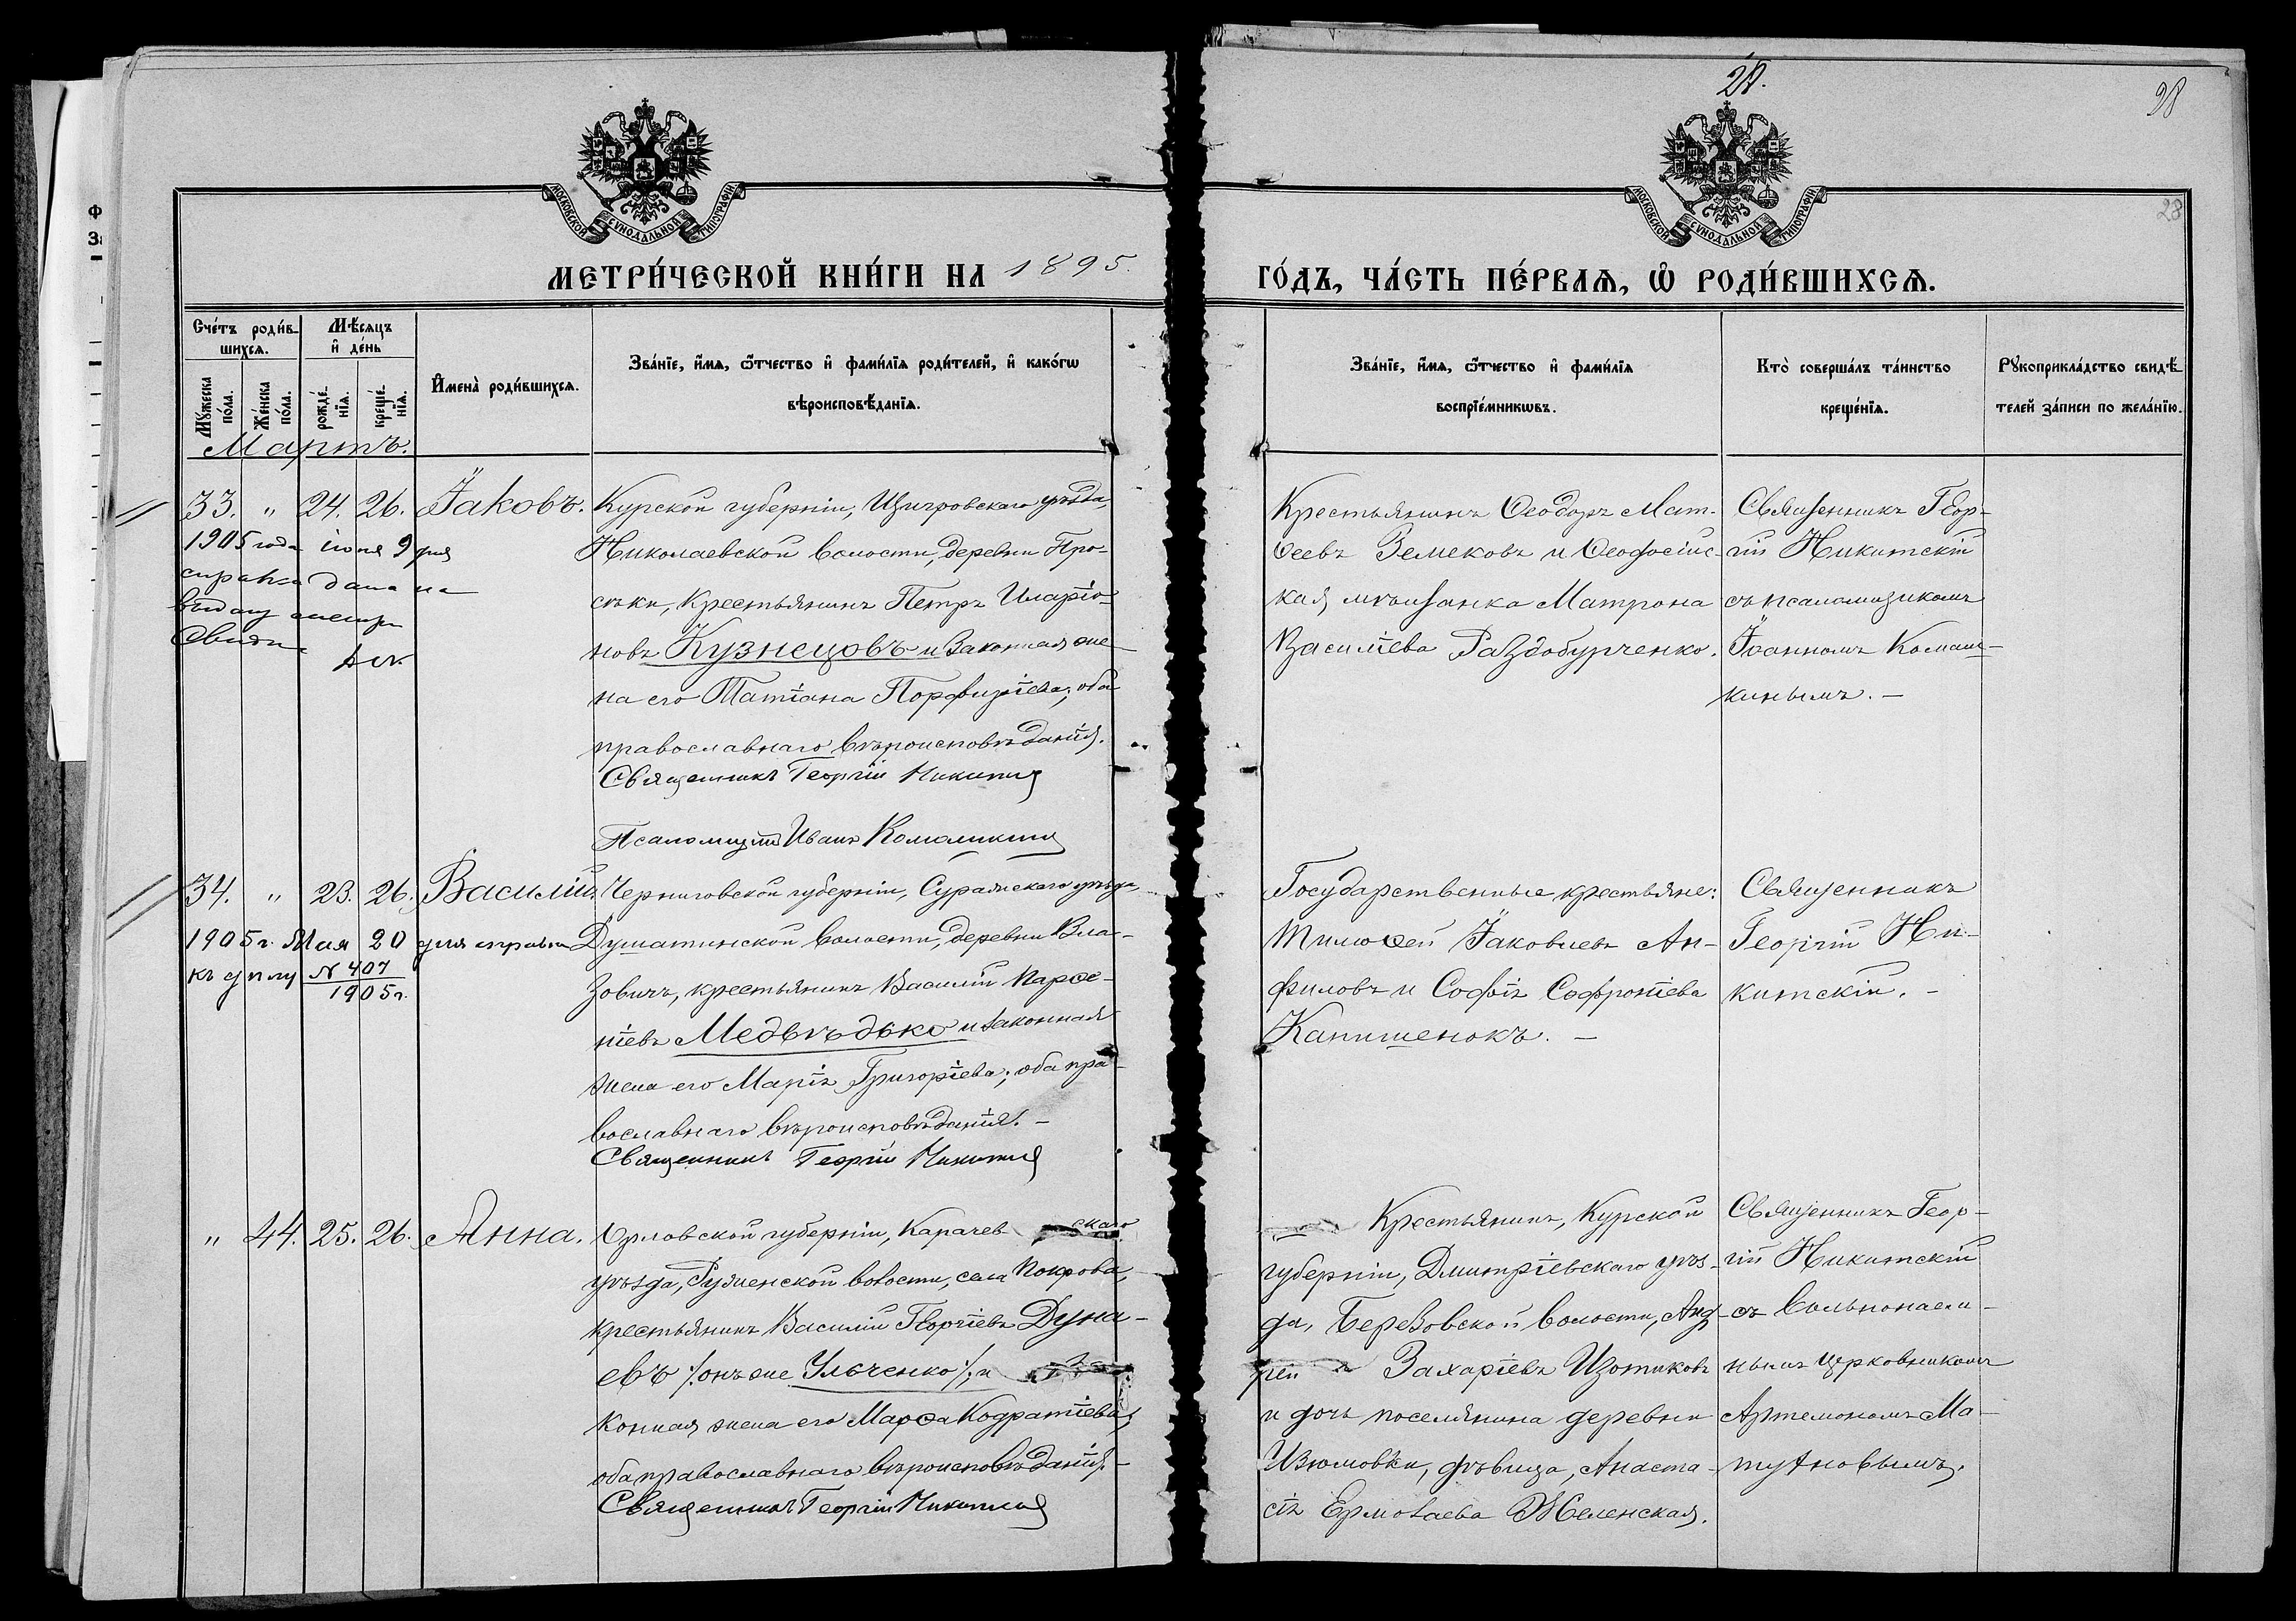 28.
28
28
МОСКОВСКОЙ СѴНОДАЛЬНОЙ ТИПОГРАФІИ
МОСКОВСКОЙ СѴНОДАЛЬНОЙ ТИПОГРАФІИ
МЕТРИ́ЧЕСКОЙ КНИ́ГИ НА 1895.
ГО́ДЪ, ЧА́СТЬ ПЕ́РВАѦ, Ѽ РОДИ́ВШИХСѦ.
Сче́тъ роди́в
шихсѧ.
Мѣ́сяцъ
и҆ де́нь
Мꙋ́жеска по́ла.
Же́нска по́ла.
рожде́нїѧ.
креще́нїѧ.
И҆мена̀ роди́вшихсѧ.
Зва́нїе, и҆́мѧ, ѻ҆́тчество и҆ фами́лїѧ роди́телей, и҆ како́гѡ
вѣроисповѣ́данїѧ.
Зва́нїе, и҆́мѧ, ѻ҆́тчество и҆ фами́лїѧ
воспрїе́мникѡвъ.
Кто̀ соверша́лъ та́инство
креще́нїѧ.
Рꙋкоприкла́дство свидѣ́
телей за́писи по жела́нїю.
Мартъ.
33. " 24. 26. Іаковъ.
1905 года іюня 9 дня
справка дана на
выдачу метри
Свидѣ
Курской губерніи, Щигровскаго уѣзда,
Николаевской волости, деревни Про-
сѣки, крестьянинъ Петръ Иларіо-
новъ Кузнецовъ и законная же-
на его Татіана Порфиріева; оба
православнаго вѣроисповѣданія.
Священникъ Георгій Никитскій
Псаломщикъ Иванъ Комашкинъ
Крестьянинъ Ѳеодоръ Мат-
ѳеевъ Земековъ и Ѳеодосійс-
кая мѣщанка Матрона
Василіева Раздобурченко.
Священникъ Геор-
гій Никитскій
съ псаломщикомъ
Іоанномъ Комаш-
кинымъ. –
34. " 23. 26. Василій.
1905 г. Мая 20 дня справка
къ дѣлу № 407
1905 г.
Черниговской губерніи, Суражскаго уѣзда
Душатинской волости, деревни Вла-
зовичъ, крестьянинъ Василій Парѳе-
ніевъ Медвѣдько и законная
жена его Марія Григоріева; оба пра-
вославнаго вѣроисповѣданія. –
Священникъ Георгій Никитскій
Государственные крестьяне:
Тимоѳей Іаковлевъ Ан-
филовъ и Софія Софроніева
Капишенокъ. –
Священникъ
Георгій Ни-
китскій. –
" 44. 25. 26. Анна.
Орловской губерніи, Карачевскаго
уѣзда, Руженской волости, села Покрова,
крестьянинъ Василій Георгіевъ Дуна-
евъ /:онъ же Ульченко:/ и за-
конная жена его Марѳа Кодратіева;
оба православнаго вѣроисповѣданія. –
Священникъ Георгій Никитскій
Крестьянинъ, Курской
губерніи, Дмитріевскаго уѣз-
да, Березовской волости, Анд-
рей Захаріевъ Изотиковъ
и дочь поселянина деревни
Изюмовки, дѣвица, Анаста-
сія Ермолаева Желенская.
Священникъ Геор-
гій Никитскій
съ вольнонаем-
нымъ церковникомъ
Артемономъ Ма-
тутновымъ.